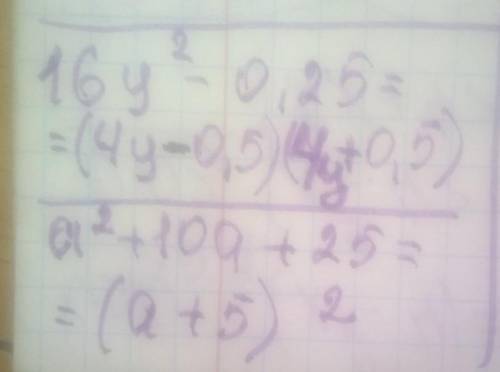 16y² - 0,25=
=(4y-0,5)(4y+0,5)
a²+10a+25=
=(a+5)²